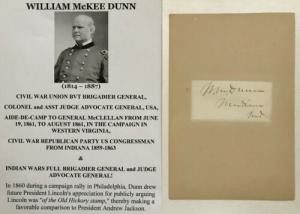 WILLIAM McKEE DUNN
(1814 – 1887)
CIVIL WAR UNION BVT BRIGADIER GENERAL,
COLONEL and ASST JUDGE ADVOCATE GENERAL, USA,
AIDE-DE-CAMP TO GENERAL McCLELLAN FROM JUNE
19, 1861, TO AUGUST 1861, IN THE CAMPAIGN IN
WESTERN VIRGINIA,
CIVIL WAR REPUBLICAN PARTY US CONGRESSMAN
FROM INDIANA 1859-1863
&
INDIAN WARS FULL BRIGADIER GENERAL and JUDGE
ADVOCATE GENERAL!
In 1860 during a campaign rally in Philadelphia, Dunn drew
future President Lincoln's appreciation for publicly arguing
Lincoln was "of the Old Hickory stump," thereby making a
favorable comparison to President Andrew Jackson.
Dunn
Ind